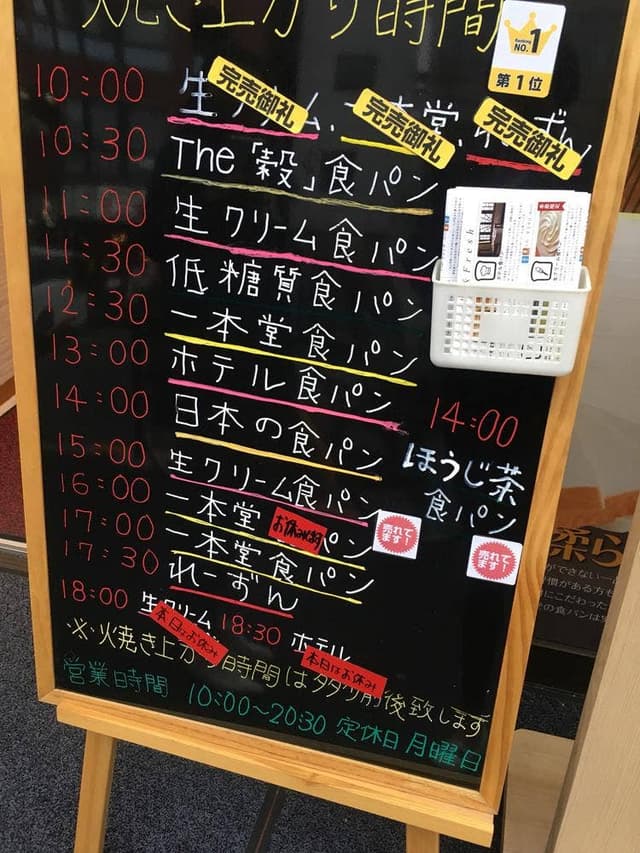 焼き上がり時間
Ranking
NO.1
第1位
10:00 生クリーム、一本堂、れーずん
完売御礼 完売御礼 完売御礼
10:30 The「穀」食パン
11:00 生クリーム食パン
11:30 低糖質食パン
12:30 一本堂食パン
13:00 ホテル食パン
14:00 日本の食パン
14:00
ほうじ茶
食パン
15:00 生クリーム食パン
売れてます!
売れてます!
16:00 一本堂 パン
17:00 一本堂食パン
17:30 れーずん
18:00 生クリーム 18:30 ホテル
本日はお休み 本日はお休み
※焼き上がり時間は多少前後致します
営業時間 10:00~20:30 定休日 月曜日
& Fresh
柔ら